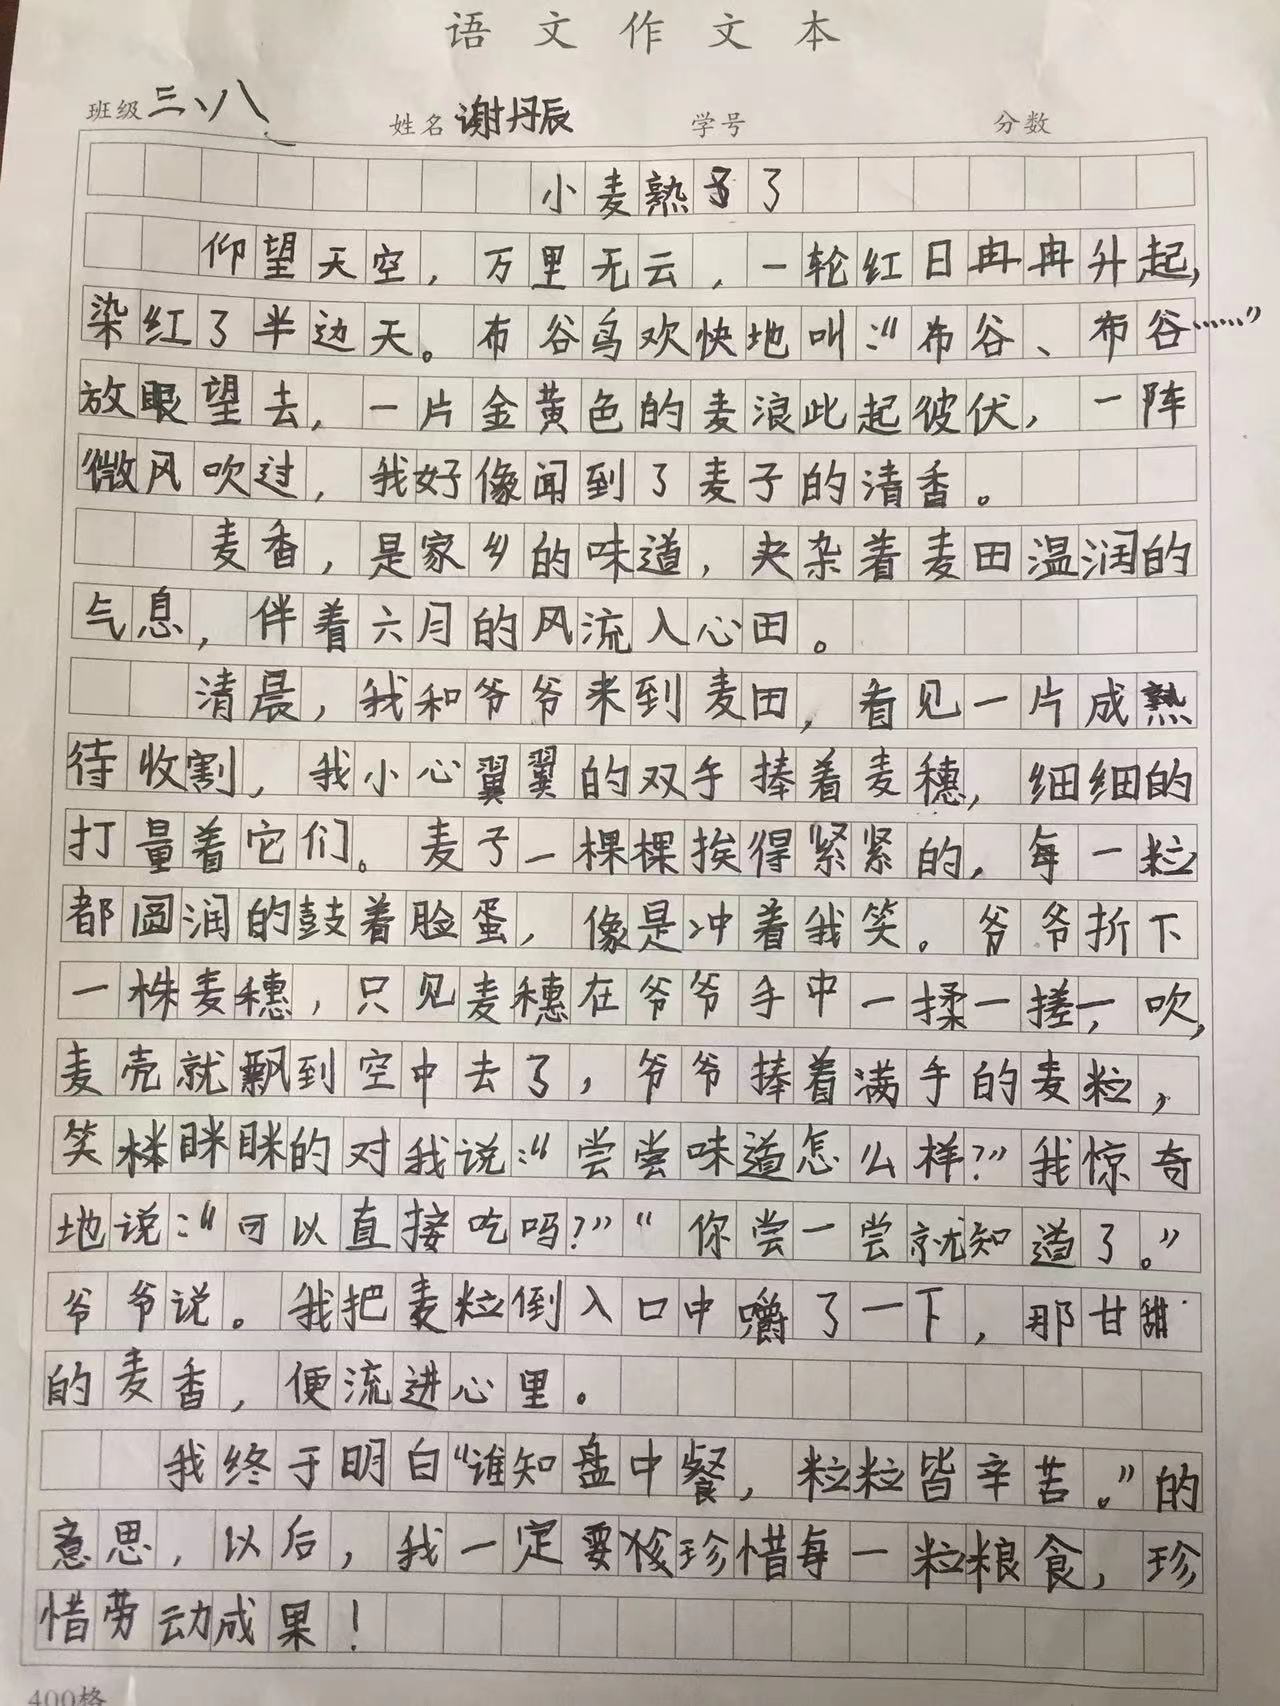 语文作文本
班级 三、八 姓名 谢丹辰 学号 分数
小麦熟了
仰望天空，万里无云，一轮红日冉冉升起，
染红了半边天。布谷鸟欢快地叫：“布谷、布谷……”
放眼望去，一片金黄色的麦浪此起彼伏，一阵
微风吹过，我好像闻到了麦子的清香。
麦香，是家乡的味道，夹杂着麦田温润的
气息，伴着六月的风流入心田。
清晨，我和爷爷来到麦田，看见一片成熟
待收割，我小心翼翼的双手捧着麦穗，细细的
打量着它们。麦子一棵棵挨得紧紧的，每一粒
都圆润的鼓着脸蛋，像是冲着我笑。爷爷折下
一株麦穗，只见麦穗在爷爷手中一揉一搓一，吹，
麦壳就飘到空中去了，爷爷捧着满手的麦粒，
笑眯眯的对我说：“尝尝味道怎么样？”我惊奇
地说：“可以直接吃吗？”“你尝一尝就知道了。”
爷爷说。我把麦粒倒入口中嚼了一下，那甘甜
的麦香，便流进心里。
我终于明白“谁知盘中餐，粒粒皆辛苦。”的
意思，以后，我一定要珍惜每一粒粮食，珍
惜劳动成果！
400格